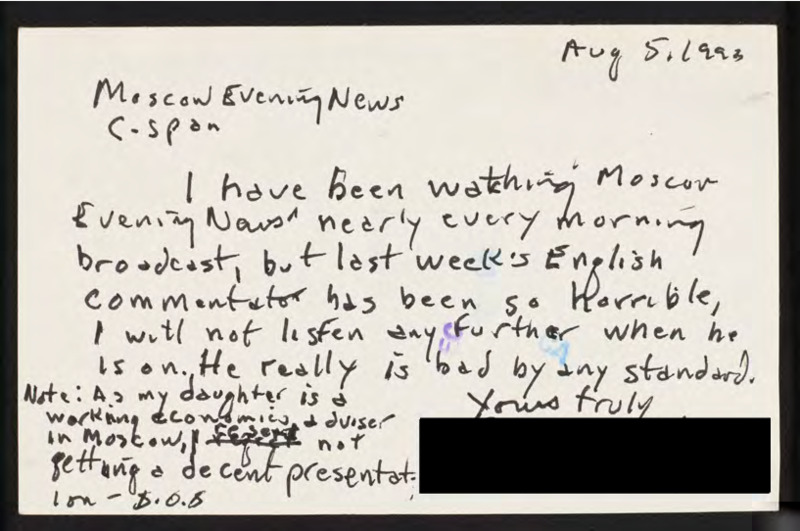 Aug 5, 1993
Moscow Evening News
C-Span
I have been watching Moscow
Evening News' nearly every morning
broadcast, but last week's English
commentator has been so horrible,
I will not listen any further when he
is on. He really is bad by any standard.
Yours truly
Note: As my daughter is a
working economics adviser
in Moscow, I not
getting a decent presentat-
ion -